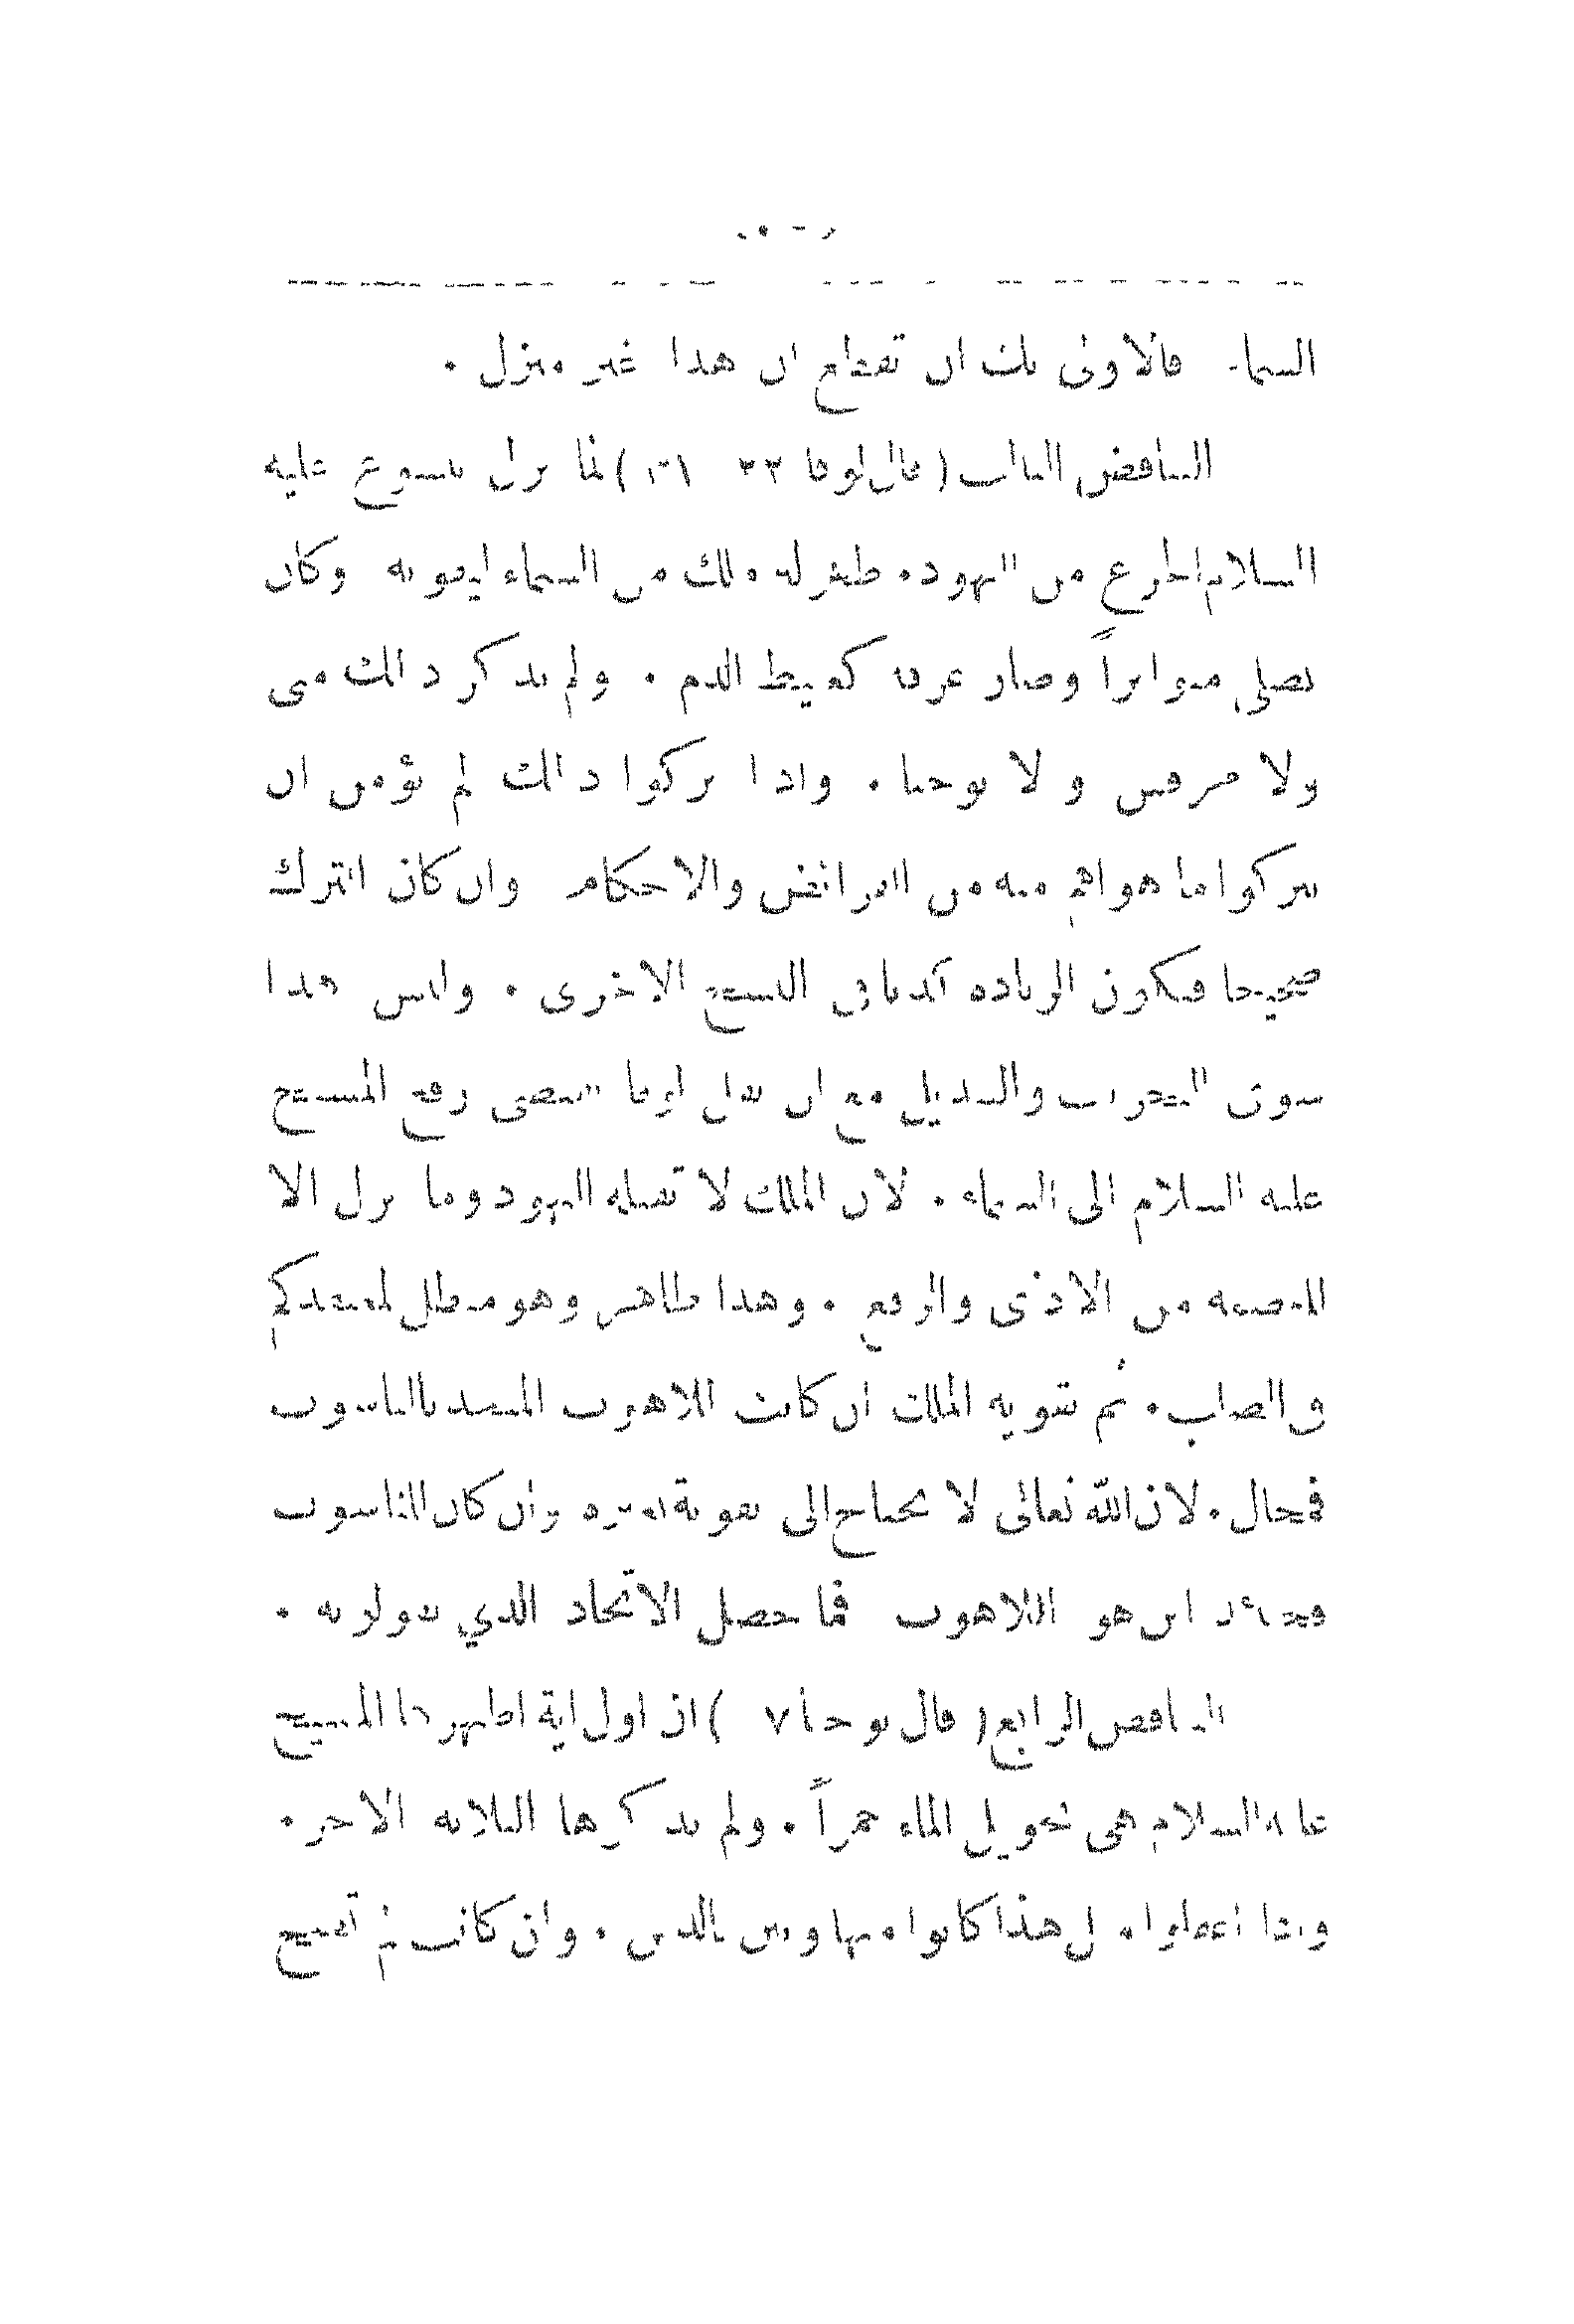 السماء فالاولى بك ان تقطع ان هذا غير منزل .
التناقض الثالث ( قال لوقا ٢٢ ) لما نزل بيسوع عليه
السلام الجزع من اليهود ظهر له ملك من السماء ليقويه وكان
يصلي متواتراً وصار عرقه كعبيط الدم . ولم يذكر ذالك متى
ولا مرقس ولا يوحنا . واذا تركوا ذالك لم يؤمن ان
يتركوا ما هو اهم منه من الفرائض والاحكام وان كان الترك
صحيحا فتكون الزياده كذبا في النسخ الاخرى . وليس هذا
سوى التحريف والتبديل مع ان نقل لوقا يقتضي رفع المسيح
عليه السلام الى السماء . لان الملك لا تغلبه اليهود وما نزل الا
للعصمه من الاذى والرفع . وهذا ظاهر وهو مبطل لمعتقدكم
في الصلب . ثم تقويه الملك ان كانت للاهوت المتحد بالناسوت
فمحال . لان الله تعالى لا يحتاج الى تقوية غيره وان كان للناسوت
فحينئذ اين هو اللاهوت فما حصل الاتحاد الذي تقولو به .
التناقض الرابع ( قال يوحنا ٧ ) ان اول اية اظهرها المسيح
عليه السلام هي تحويل الماء خمراً . ولم يذكرها الثلاثه الاخر .
واذا اغفلوا مثل هذا كانوا متهاونين بالدين . وان كانت لم تصح